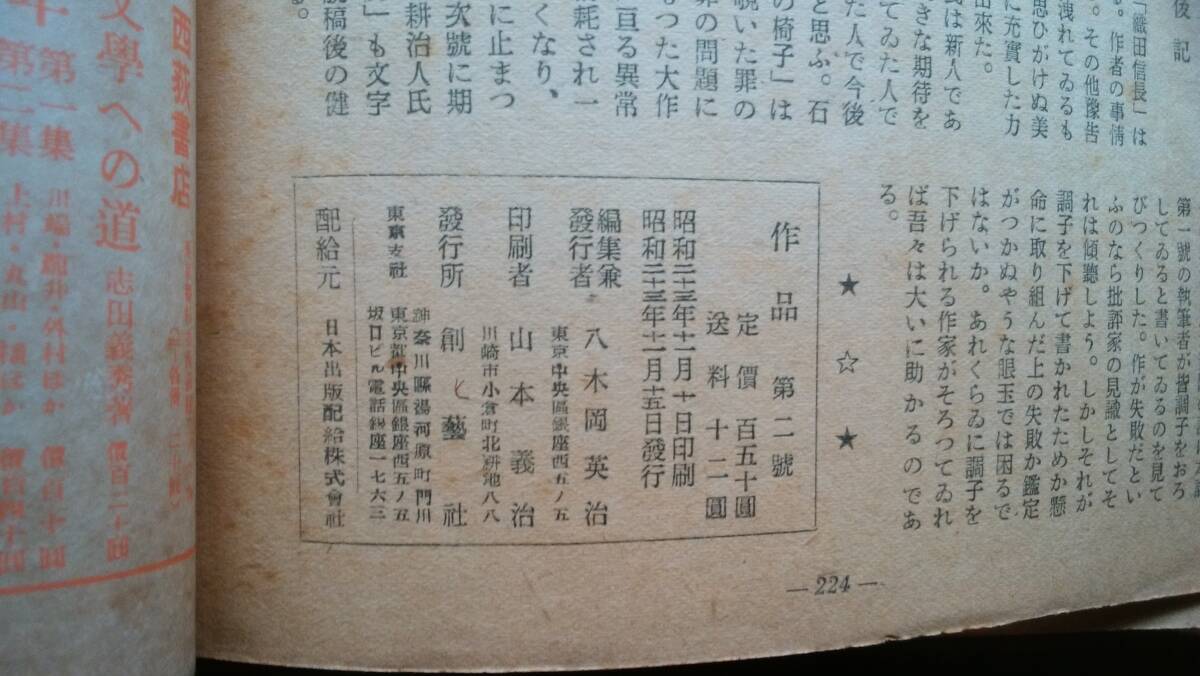 後記
「織田信長」は
。作者の事情
。その他豫告
洩れてゐるも
思ひがけぬ美
に充實した力
出來た。
氏は新人であ
きな期待を
てゐた人で
た人で今後
と思ふ。石
の椅子」は
覗いた罪の
罪の問題に
つた大作
亘る異常
耗され一
くなり、
に止まつ
次號に期
耕治人氏
」も文字
脱稿後の健
る。
第一號の執筆者が皆調子をおろ
してゐると書いてゐるのを見て
びつくりした。作が失敗だとい
ふのなら批評家の見識としてそ
れは傾聽しよう。しかしそれが
調子を下げて書かれたためか懸
命に取り組んだ上の失敗か鑑定
がつかぬやうな眼玉では困るで
はないか。あれくらゐに調子を
下げられる作家がそろつてゐれ
ば吾々は大いに助かるのであ
る。
★ ☆ ★
作品 第二號
定價 百五十圓
送料 十二圓
昭和二十三年十二月十日印刷
昭和二十三年十二月十五日發行
編集兼
發行者 八木岡英治
東京中央區銀座西五ノ五
印刷者 山本義治
川崎市小倉町北耕池八八
發行所 創藝社
神奈川縣湯河原町門川
東京支社 東京都中央區銀座西五ノ五
坂口ビル電話銀座一七六三
配給元 日本出版配給株式會社
—224—
西荻書店
文學への道 志田義秀著 價百二十圓
第一集
第二集